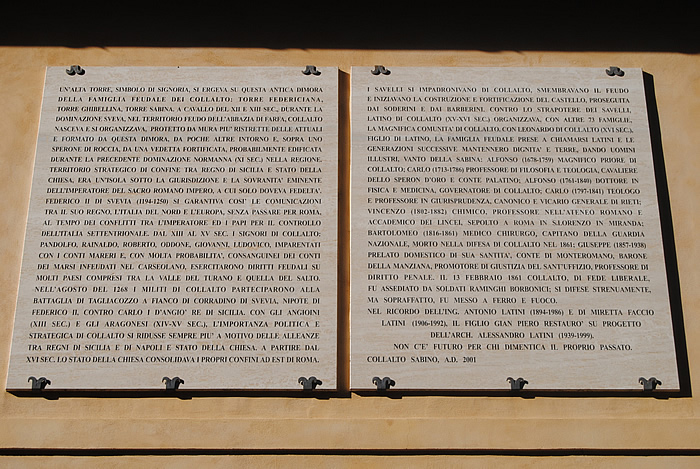 UN'ALTA TORRE, SIMBOLO DI SIGNORIA, SI ERGEVA SU QUESTA ANTICA DIMORA
DELLA FAMIGLIA FEUDALE DEI COLLALTO: TORRE FEDERICIANA,
TORRE GHIBELLINA, TORRE SABINA, A CAVALLO DEL XII E XIII SEC., DURANTE LA
DOMINAZIONE SVEVA, NEL TERRITORIO FEUDO DELL'ABBAZIA DI FARFA, COLLALTO
NASCEVA E SI ORGANIZZAVA, PROTETTO DA MURA PIU' RISTRETTE DELLE ATTUALI
E FORMATO DA QUESTA DIMORA, DA POCHE ALTRE INTORNO E, SOPRA UNO
SPERONE DI ROCCIA, DA UNA VEDETTA FORTIFICATA, PROBABILMENTE EDIFICATA
DURANTE LA PRECEDENTE DOMINAZIONE NORMANNA (XI SEC.) NELLA REGIONE.
TERRITORIO STRATEGICO DI CONFINE TRA REGNO DI SICILIA E STATO DELLA
CHIESA, ERA UN'ISOLA SOTTO LA GIURISDIZIONE E LA SOVRANITA' EMINENTE
DELL'IMPERATORE DEL SACRO ROMANO IMPERO, A CUI SOLO DOVEVA FEDELTA'.
FEDERICO II DI SVEVIA (1194-1250) SI GARANTIVA COSI' LE COMUNICAZIONI
TRA IL SUO REGNO, L'ITALIA DEL NORD E L'EUROPA, SENZA PASSARE PER ROMA,
AL TEMPO DEI CONFLITTI TRA L'IMPERATORE ED I PAPI PER IL CONTROLLO
DELL'ITALIA SETTENTRIONALE. DAL XIII AL XV SEC. I SIGNORI DI COLLALTO:
PANDOLFO, RAINALDO, ROBERTO, ODDONE, GIOVANNI, LUDOVICO, IMPARENTATI
CON I CONTI MARERI E, CON MOLTA PROBABILITA', CONSANGUINEI DEI CONTI
DEI MARSI INFEUDATI NEL CARSEOLANO, ESERCITARONO DIRITTI FEUDALI SU
MOLTI PAESI COMPRESI TRA LA VALLE DEL TURANO E QUELLA DEL SALTO.
NELL'AGOSTO DEL 1268 I MILITI DI COLLALTO PARTECIPARONO ALLA
BATTAGLIA DI TAGLIACOZZO A FIANCO DI CORRADINO DI SVEVIA, NIPOTE DI
FEDERICO II, CONTRO CARLO I D'ANGIO' RE DI SICILIA. CON GLI ANGIOINI
(XIII SEC.) E GLI ARAGONESI (XIV-XV SEC.), L'IMPORTANZA POLITICA E
STRATEGICA DI COLLALTO SI RIDUSSE SEMPRE PIU' A MOTIVO DELLE ALLEANZE
TRA REGNI DI SICILIA E DI NAPOLI E STATO DELLA CHIESA. A PARTIRE DAL
XVI SEC. LO STATO DELLA CHIESA CONSOLIDAVA I PROPRI CONFINI AD EST DI ROMA.
I SAVELLI SI IMPADRONIVANO DI COLLALTO, SMEMBRAVANO IL FEUDO
E INIZIAVANO LA COSTRUZIONE E FORTIFICAZIONE DEL CASTELLO, PROSEGUITA
DAI SODERINI E DAI BARBERINI. CONTRO LO STRAPOTERE DEI SAVELLI,
LATINO DI COLLALTO (XV-XVI SEC.) ORGANIZZAVA, CON ALTRE 73 FAMIGLIE,
LA MAGNIFICA COMUNITA' DI COLLALTO. CON LEONARDO DI COLLALTO (XVI SEC.),
FIGLIO DI LATINO, LA FAMIGLIA FEUDALE PRESE A CHIAMARSI LATINI E LE
GENERAZIONI SUCCESSIVE MANTENNERO DIGNITA' E TERRE, DANDO UOMINI
ILLUSTRI, VANTO DELLA SABINA: ALFONSO (1678-1759) MAGNIFICO PRIORE DI
COLLALTO; CARLO (1713-1786) PROFESSORE DI FILOSOFIA E TEOLOGIA, CAVALIERE
DELLO SPERON D'ORO E CONTE PALATINO; ALFONSO (1761-1840) DOTTORE IN
FISICA E MEDICINA, GOVERNATORE DI COLLALTO; CARLO (1797-1841) TEOLOGO
E PROFESSORE IN GIURISPRUDENZA, CANONICO E VICARIO GENERALE DI RIETI;
VINCENZO (1802-1882) CHIMICO, PROFESSORE NELL'ATENEO ROMANO E
ACCADEMICO DEI LINCEI, SEPOLTO A ROMA IN S.LORENZO IN MIRANDA;
BARTOLOMEO (1816-1861) MEDICO CHIRURGO, CAPITANO DELLA GUARDIA
NAZIONALE, MORTO NELLA DIFESA DI COLLALTO NEL 1861; GIUSEPPE (1857-1938)
PRELATO DOMESTICO DI SUA SANTITA', CONTE DI MONTEROMANO, BARONE
DELLA MANZIANA, PROMOTORE DI GIUSTIZIA DEL SANT'UFFIZIO, PROFESSORE DI
DIRITTO PENALE. IL 13 FEBBRAIO 1861 COLLALTO, DI FEDE LIBERALE,
FU ASSEDIATO DA SOLDATI RAMINGHI BORBONICI; SI DIFESE STRENUAMENTE,
MA SOPRAFFATTO, FU MESSO A FERRO E FUOCO.
NEL RICORDO DELL'ING. ANTONIO LATINI (1894-1986) E DI MIRETTA FACCIO
LATINI (1906-1992), IL FIGLIO GIAN PIERO RESTAURO' SU PROGETTO
DELL'ARCH. ALESSANDRO LATINI (1939-1999).
NON C'E' FUTURO PER CHI DIMENTICA IL PROPRIO PASSATO.
COLLALTO SABINO, A.D. 2001